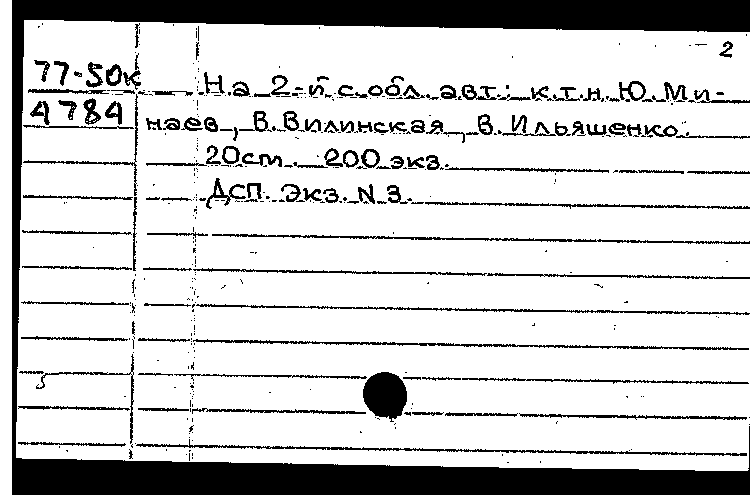 2
77-50к На 2-й с. обл. авт.: к.т.н. Ю. Ми-
4784 наев, В. Вилинская, В. Ильяшенко.
20cm. 200 экз.
ДСП. Экз. N 3.